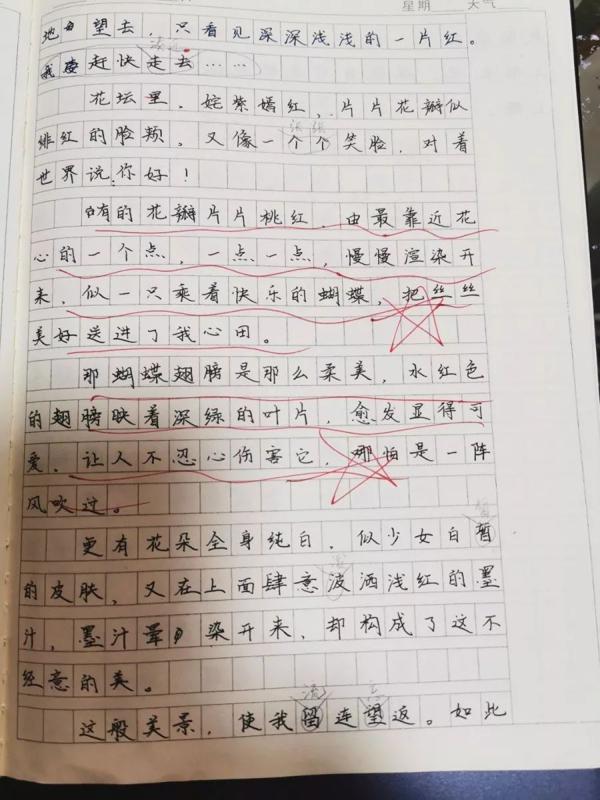 星期 天气
地望去，只看见深深浅浅的一片红。
我赶快走去……
花坛里，姹紫嫣红，片片花瓣似
绯红的脸颊。又像一个个笑脸，对着
世界说：你好！
有的花瓣片片桃红，由最靠近花
心的一个点，一点一点，慢慢渲染开
来，似一只乘着快乐的蝴蝶，把丝丝
美好送进了我心田。
那蝴蝶翅膀是那么柔美，水红色
的翅膀映着深绿的叶片，愈发显得可
爱，让人不忍心伤害它，哪怕是一阵
风吹过。
更有花朵全身纯白，似少女白暂
的皮肤，又在上面肆意波洒浅红的墨
汁，墨汁晕染开来，却构成了这不
经意的美。
这般美景，使我留连望返。如此